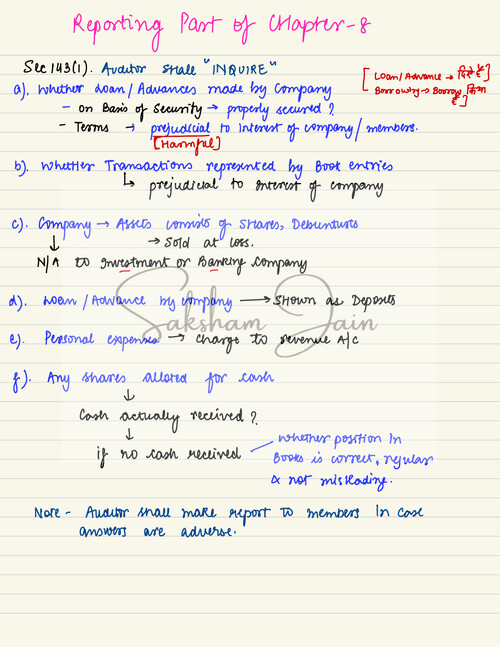 Reporting Part of Chapter-8
Sec 143(1). Auditor shall "INQUIRE"
[Loan/Advance → दिए है
Borrowing → Borrow है]
a). Whether Loan/Advances made by Company
- on Basis of Security → properly secured?
- Terms → prejudicial to interest of company/members.
[Harmful]
b). Whether Transactions represented by Book entries
↳ prejudicial to interest of company
c). Company → Assets consists of shares, Debuntures
↓ → Sold at loss.
N/A to Investment or Banking Company
d). Loan/Advance by company → Shown as Deposits
e). Personal expenses → Charge to revenue A/c
Saksham Jain
f). Any shares alloted for cash
↓
Cash actually received?
↓
if no cash received — Whether position in
Books is correct, regular
& not misleading.
Note - Auditor shall make report to members in case
answers are adverse.